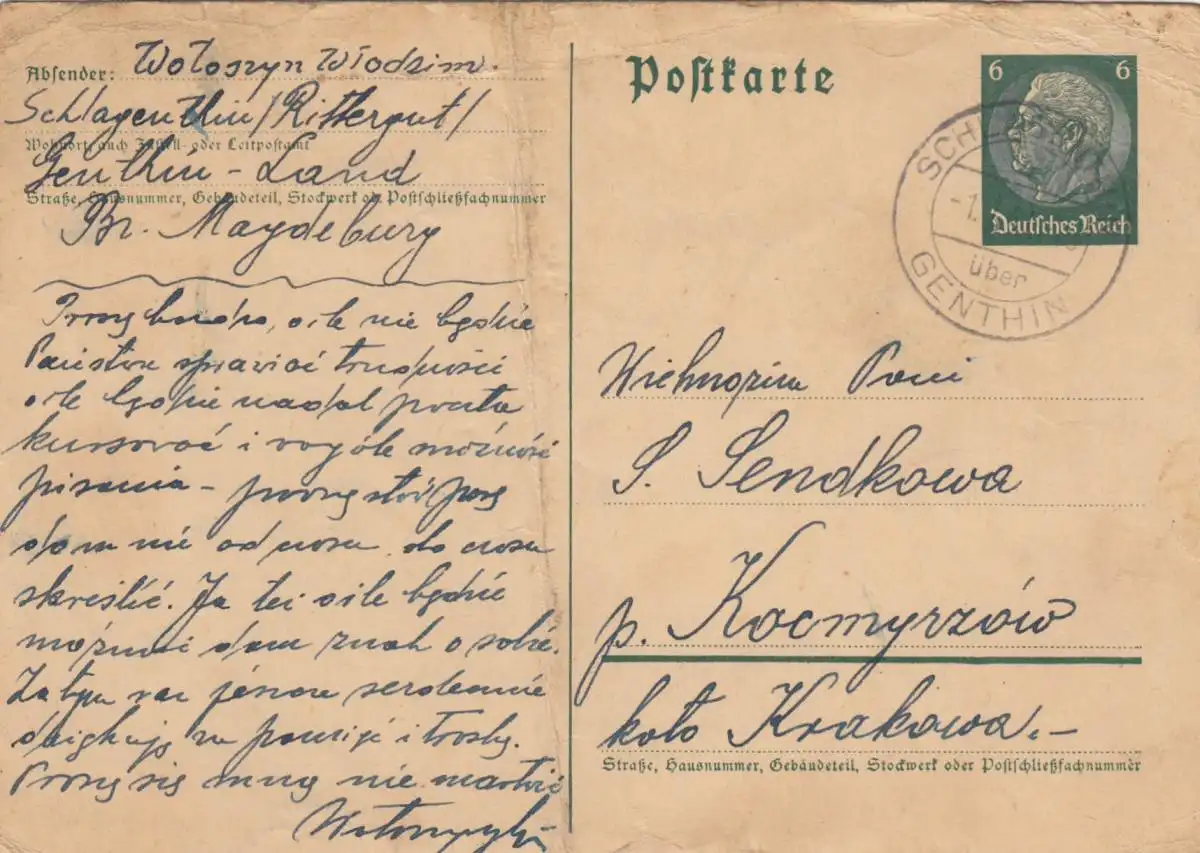 Absender: Wołoszyn Włodzim.
Schlagenthin/Rittergut/
Wohnort, auch Zustell- oder Leitpostamt
Genthin-Land
Straße, Hausnummer, Gebäudeteil, Stockwerk od. Postschließfachnummer
Br. Magdeburg
Proszę bardzo, o ile nie będzie
Państwu sprawiać trudności
o ile będzie nadal poczta
kursować i wogóle możność
pisania – proszę stów parę
do mnie od czasu do czasu
skreślić. Ja też o ile będzie
możności dam znak o sobie.
Za tym raz jeszcze serdecznie
dziękuję za pamięć i troskę.
Proszę się mną nie martwić
Postkarte
6 6
Deutsches Reich
über
GENTHIN
Wielmożna Pani
S. Sendkowa
p. Kocmyrzów
koło Krakowa.–
Straße, Hausnummer, Gebäudeteil, Stockwerk oder Postschließfachnummer